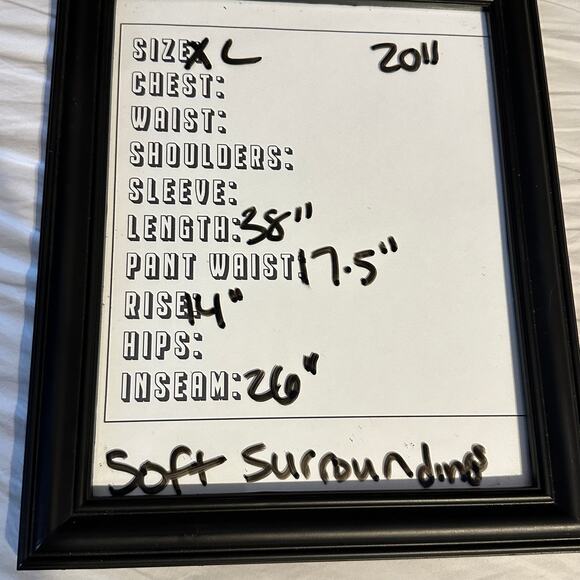 SIZE: XL 20"
CHEST:
WAIST:
SHOULDERS:
SLEEVE:
LENGTH: 38"
PANT WAIST: 17.5"
RISE: 14"
HIPS:
INSEAM: 26"
Soft Surroundings